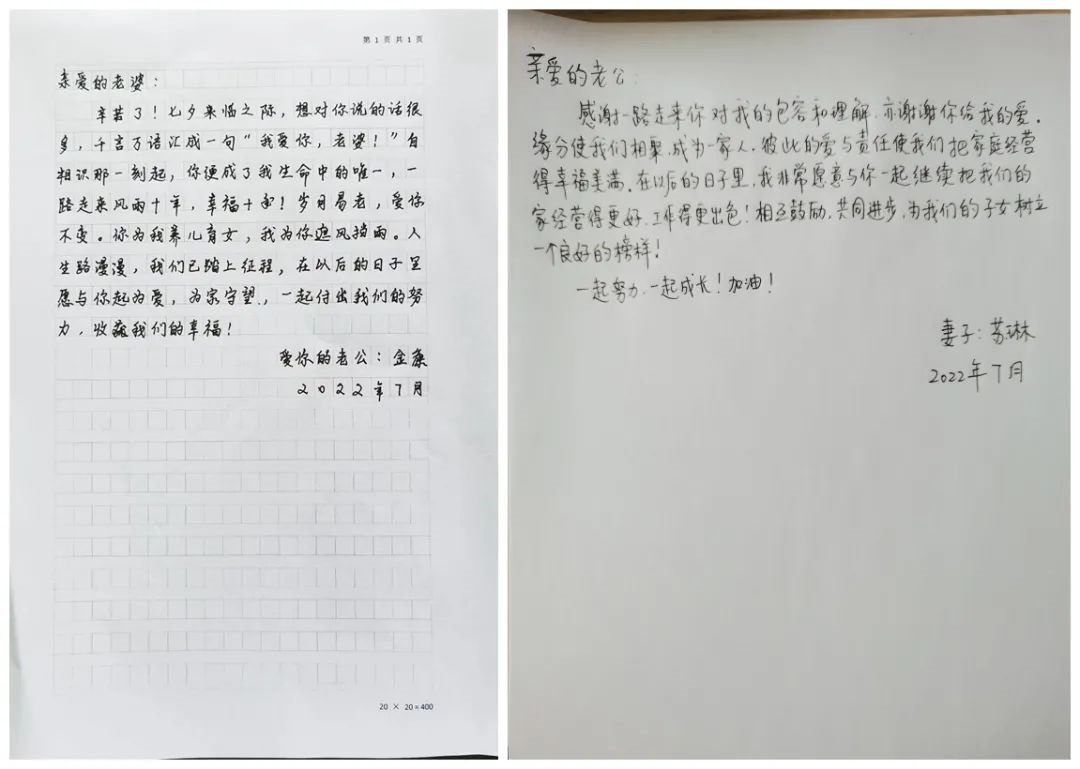 第 1 页 共 1 页
亲爱的老婆：
辛苦了！七夕来临之际，想对你说的话很
多，千言万语汇成一句“我爱你，老婆！”自
相识那一刻起，你便成了我生命中的唯一，一
路走来风雨十年，幸福十年！岁月易老，爱你
不变。你为我养儿育女，我为你遮风挡雨。人
生路漫漫，我们已踏上征程，在以后的日子里
愿与你起为爱，为家守望，一起付出我们的努
力，收获我们的幸福！
爱你的老公：金
2022年7月
20 × 20=400
亲爱的老公：
感谢一路走来你对我的包容和理解，亦谢谢你给我的爱。
缘分使我们相聚，成为一家人，彼此的爱与责任使我们把家庭经营
得幸福美满。在以后的日子里，我非常愿意与你一起继续把我们的
家经营得更好，工作得更出色！相互鼓励，共同进步，为我们的子女树立
一个良好的榜样！
一起努力，一起成长！加油！
妻子：苏琳
2022年7月